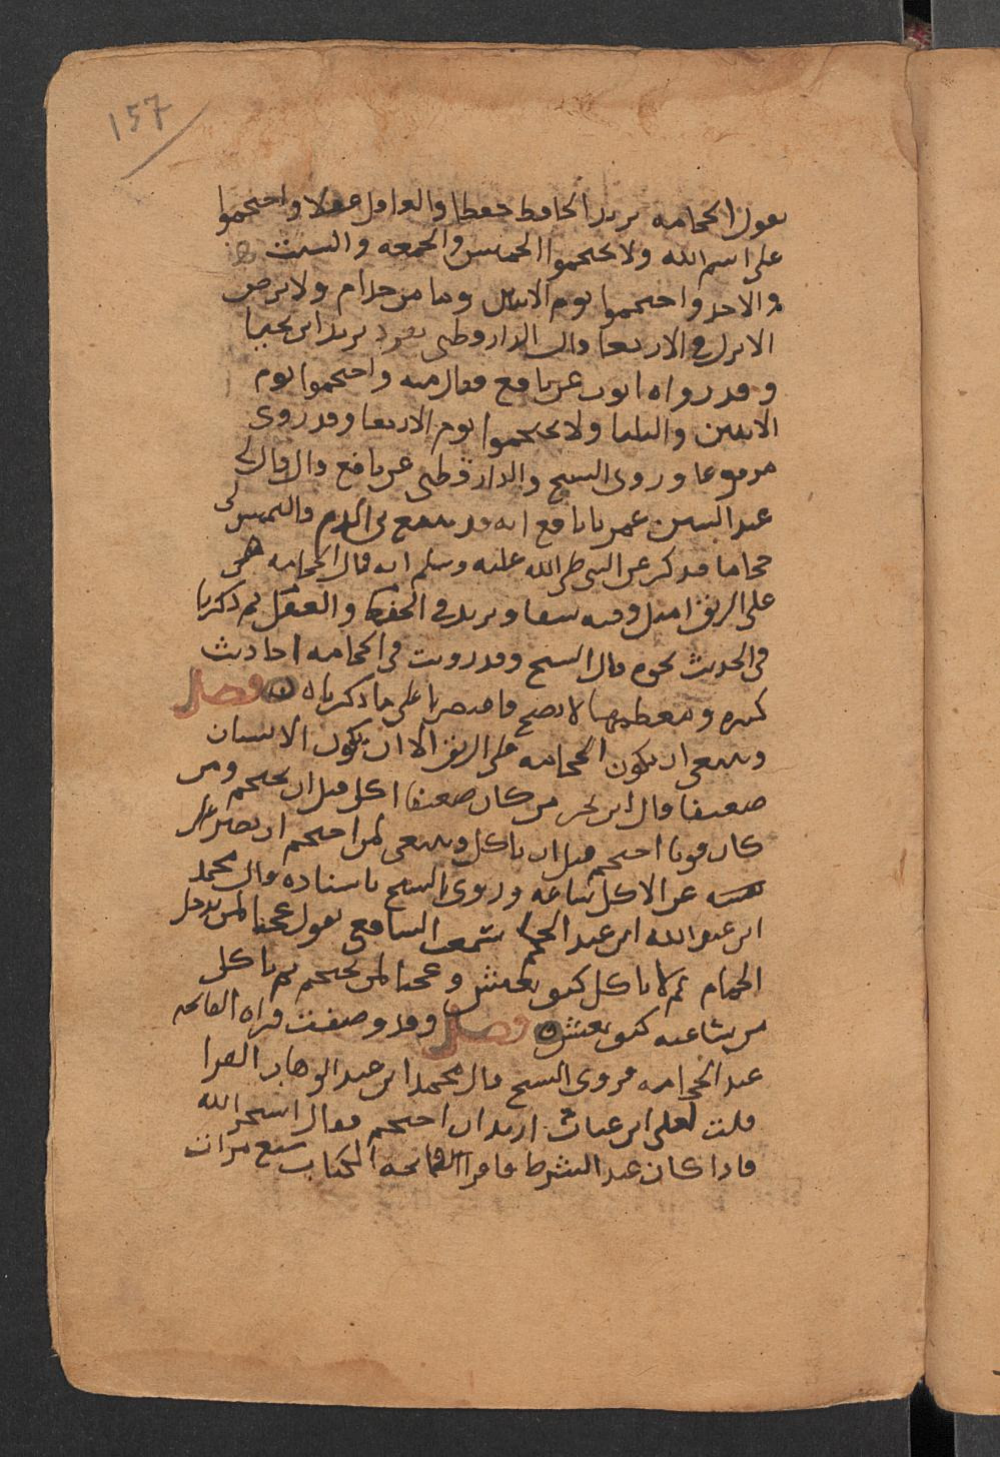 157
يقول الحجامه تزيد الحافظ حفظا والعاقل عقلا واحتجموا
على اسم الله ولا تحتجموا الخميس والجمعه والسبت
والاحد واحتجموا يوم الاثنين وما من جذام ولا برص
الا نزل في الاربعا قال الدارقطني تفرد به زياد ابن يحيى
وقد رواه ايوب عن نافع فقال فيه واحتجموا يوم
الاثنين والثلثا ولا تحتجموا يوم الاربعا وقد روى
مرفوعا وروى الشيخ والدارقطني عن نافع قال قال لي
عبد الله بن عمر يا نافع انه قد تبيغ بي الدم فالتمس لي
حجاما فذكر عن النبي صلى الله عليه وسلم انه قال الحجامه هي
على الريق امثل وفيه شفا وتزيد في الحفظ والعقل ثم ذكر يا
في الحديث نحوه قال الشيخ وقد رويت في الحجامه احاديث
كثيره ومعظمها لا يصح فاقتصرنا على ما ذكرناه فصل
وينبغي ان تكون الحجامه على الريق الا ان يكون الانسان
ضعيفا قال ابن بحر من كان ضعيفا اكل قبل ان يحتجم ومن
كان قويا احتجم قبل ان ياكل وينبغي لمن احتجم ان يصبر
نفسه عن الاكل ساعه وروى الشيخ باسناده قال محمد
ابن عبد الله ابن عبد الحكم سمعت الشافعي يقول عجبا لمن يدخل
الحمام ثم لا ياكل كيف يعيش وعجبا لمن يحتجم ثم ياكل
من ساعته كيف يعيش فصل وقد وصفت قراه الفاتحه
عند الحجامه فروى الشيخ قال محمد ابن عبد الوهاب الفرا
قلت لعلى ابن عثام اريد ان احتجم فقال استخر الله
فاذا كان عند الشرط فاقرا فاتحه الكتاب سبع مرات